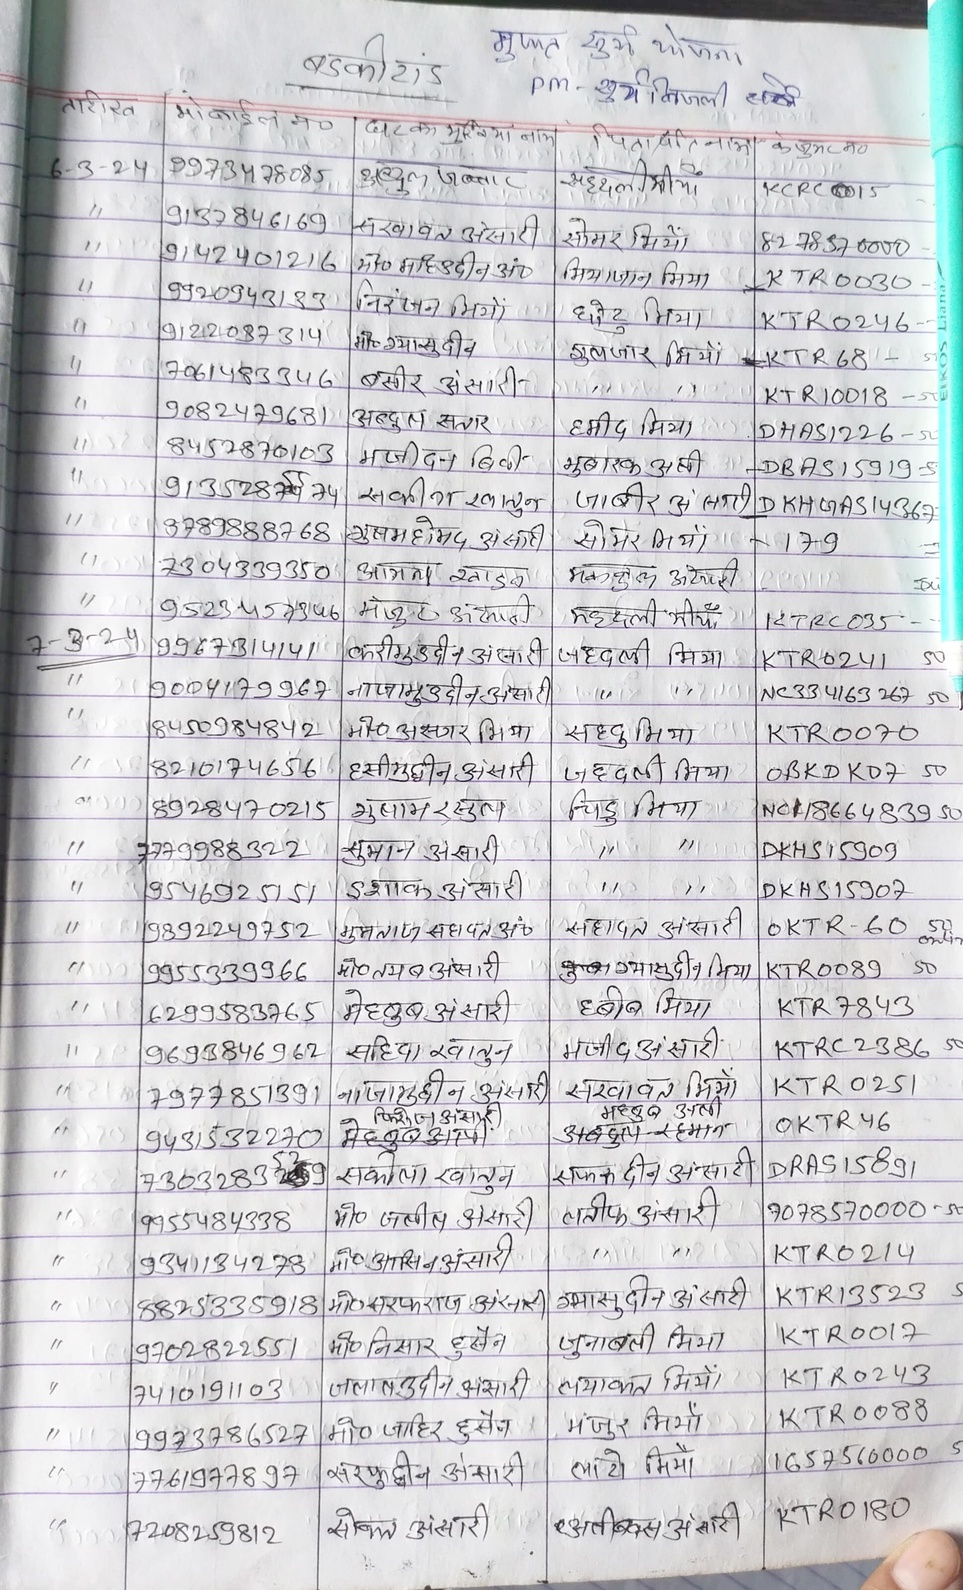 मुफ्त सुर्य योजना
बडकीटांड
PM-सुर्य बिजली
तारीख मोबाईल न० घर का मुखिया नाम पिता/पति नाम कंजुमर न०
6-3-24 9973478085 अब्दुल जब्बार सहदली मीयाँ KCRC0015
" 9137846169 सखावत अंसारी सोमर मियाँ 8278570000
" 9142401216 मो० महिउद्दीन अं० मियाजान मिया KTR0030
" 9920943133 निरंजन मियाँ छोटु मिया KTR0246
" 9122087314 मो० ग्यासुदीन गुलजार मियाँ KTR68
" 7061483346 बसीर अंसारी " " KTR10018 - 50
" 9082479681 अब्दुल सतार हमीद मिया DHAS1226 - 50
" 8452870103 मजीदन बिबी मुबारक अली DBAS15919
" 913528 74 सकीना खातुन जाबीर अंसारी DKHGAS14367
" 9789888768 गुलाम होमद अंसारी सोमर मियाँ 179
" 7304339350 मकबुल अंसारी
" 95234573146 मंजुर अंसारी सहदली मीयाँ KTRC035
7-3-24 9967314141 करीमुद्दीन अंसारी जहदली मिया KTR0241 50
" 9004179967 नाजामुद्दीन अंसारी " " NC334163267 50
" 8450984842 मो० असगर मिया सहदु मिया KTR0070
" 8210174656 हसीमुद्दीन अंसारी जहदली मिया OBKDKD7 50
" 8928470215 गुलाम रसुल चिडु मिया NCH18664839 50
" 7779988322 सुमान अंसारी " " DKHS15909
" 9546925151 इशाक अंसारी " " DKHS15907
" 9892249752 मुमताज सहादत अं० सहादत अंसारी OKTR-60 50
" 9955339966 मो० तयब अंसारी ग्यासुदीन मिया KTR0089 50
" 6299583765 मेहबुब अंसारी हबीब मिया KTR7843
" 9693846962 सहिदा खातुन मजीद अंसारी KTRC2386 50
" 7977851391 नाजामुद्दीन अंसारी सखावत मियाँ KTR0251
फिरोज अंसारी महबुब अली
" 9431532270 मेहबुब अली अबदुल रहमान OKTR46
" 7303283 9 सकीला खातुन सफरुदीन अंसारी DRAS15891
" 9955484338 मो० जलील अंसारी लतीफ अंसारी 9078570000 - 50
" 9341134278 मो० आसिन अंसारी " " KTR0214
" 8825335918 मो० सरफराज अंसारी ग्यासुदीन अंसारी KTR13523 5
" 9702822551 मो० निसार हुसैन जुनाबली मिया KTR0017
" 7410191103 जलालुदीन अंसारी लयाकत मियाँ KTR0243
" 9973786527 मो० जाहिर हुसैन मंजुर मियाँ KTR0088
" 7761977897 सरफुद्दीन अंसारी लाटो मियाँ 1657560000 5
" 7208259812 सौकत अंसारी अलीबक्स अंसारी KTR0180